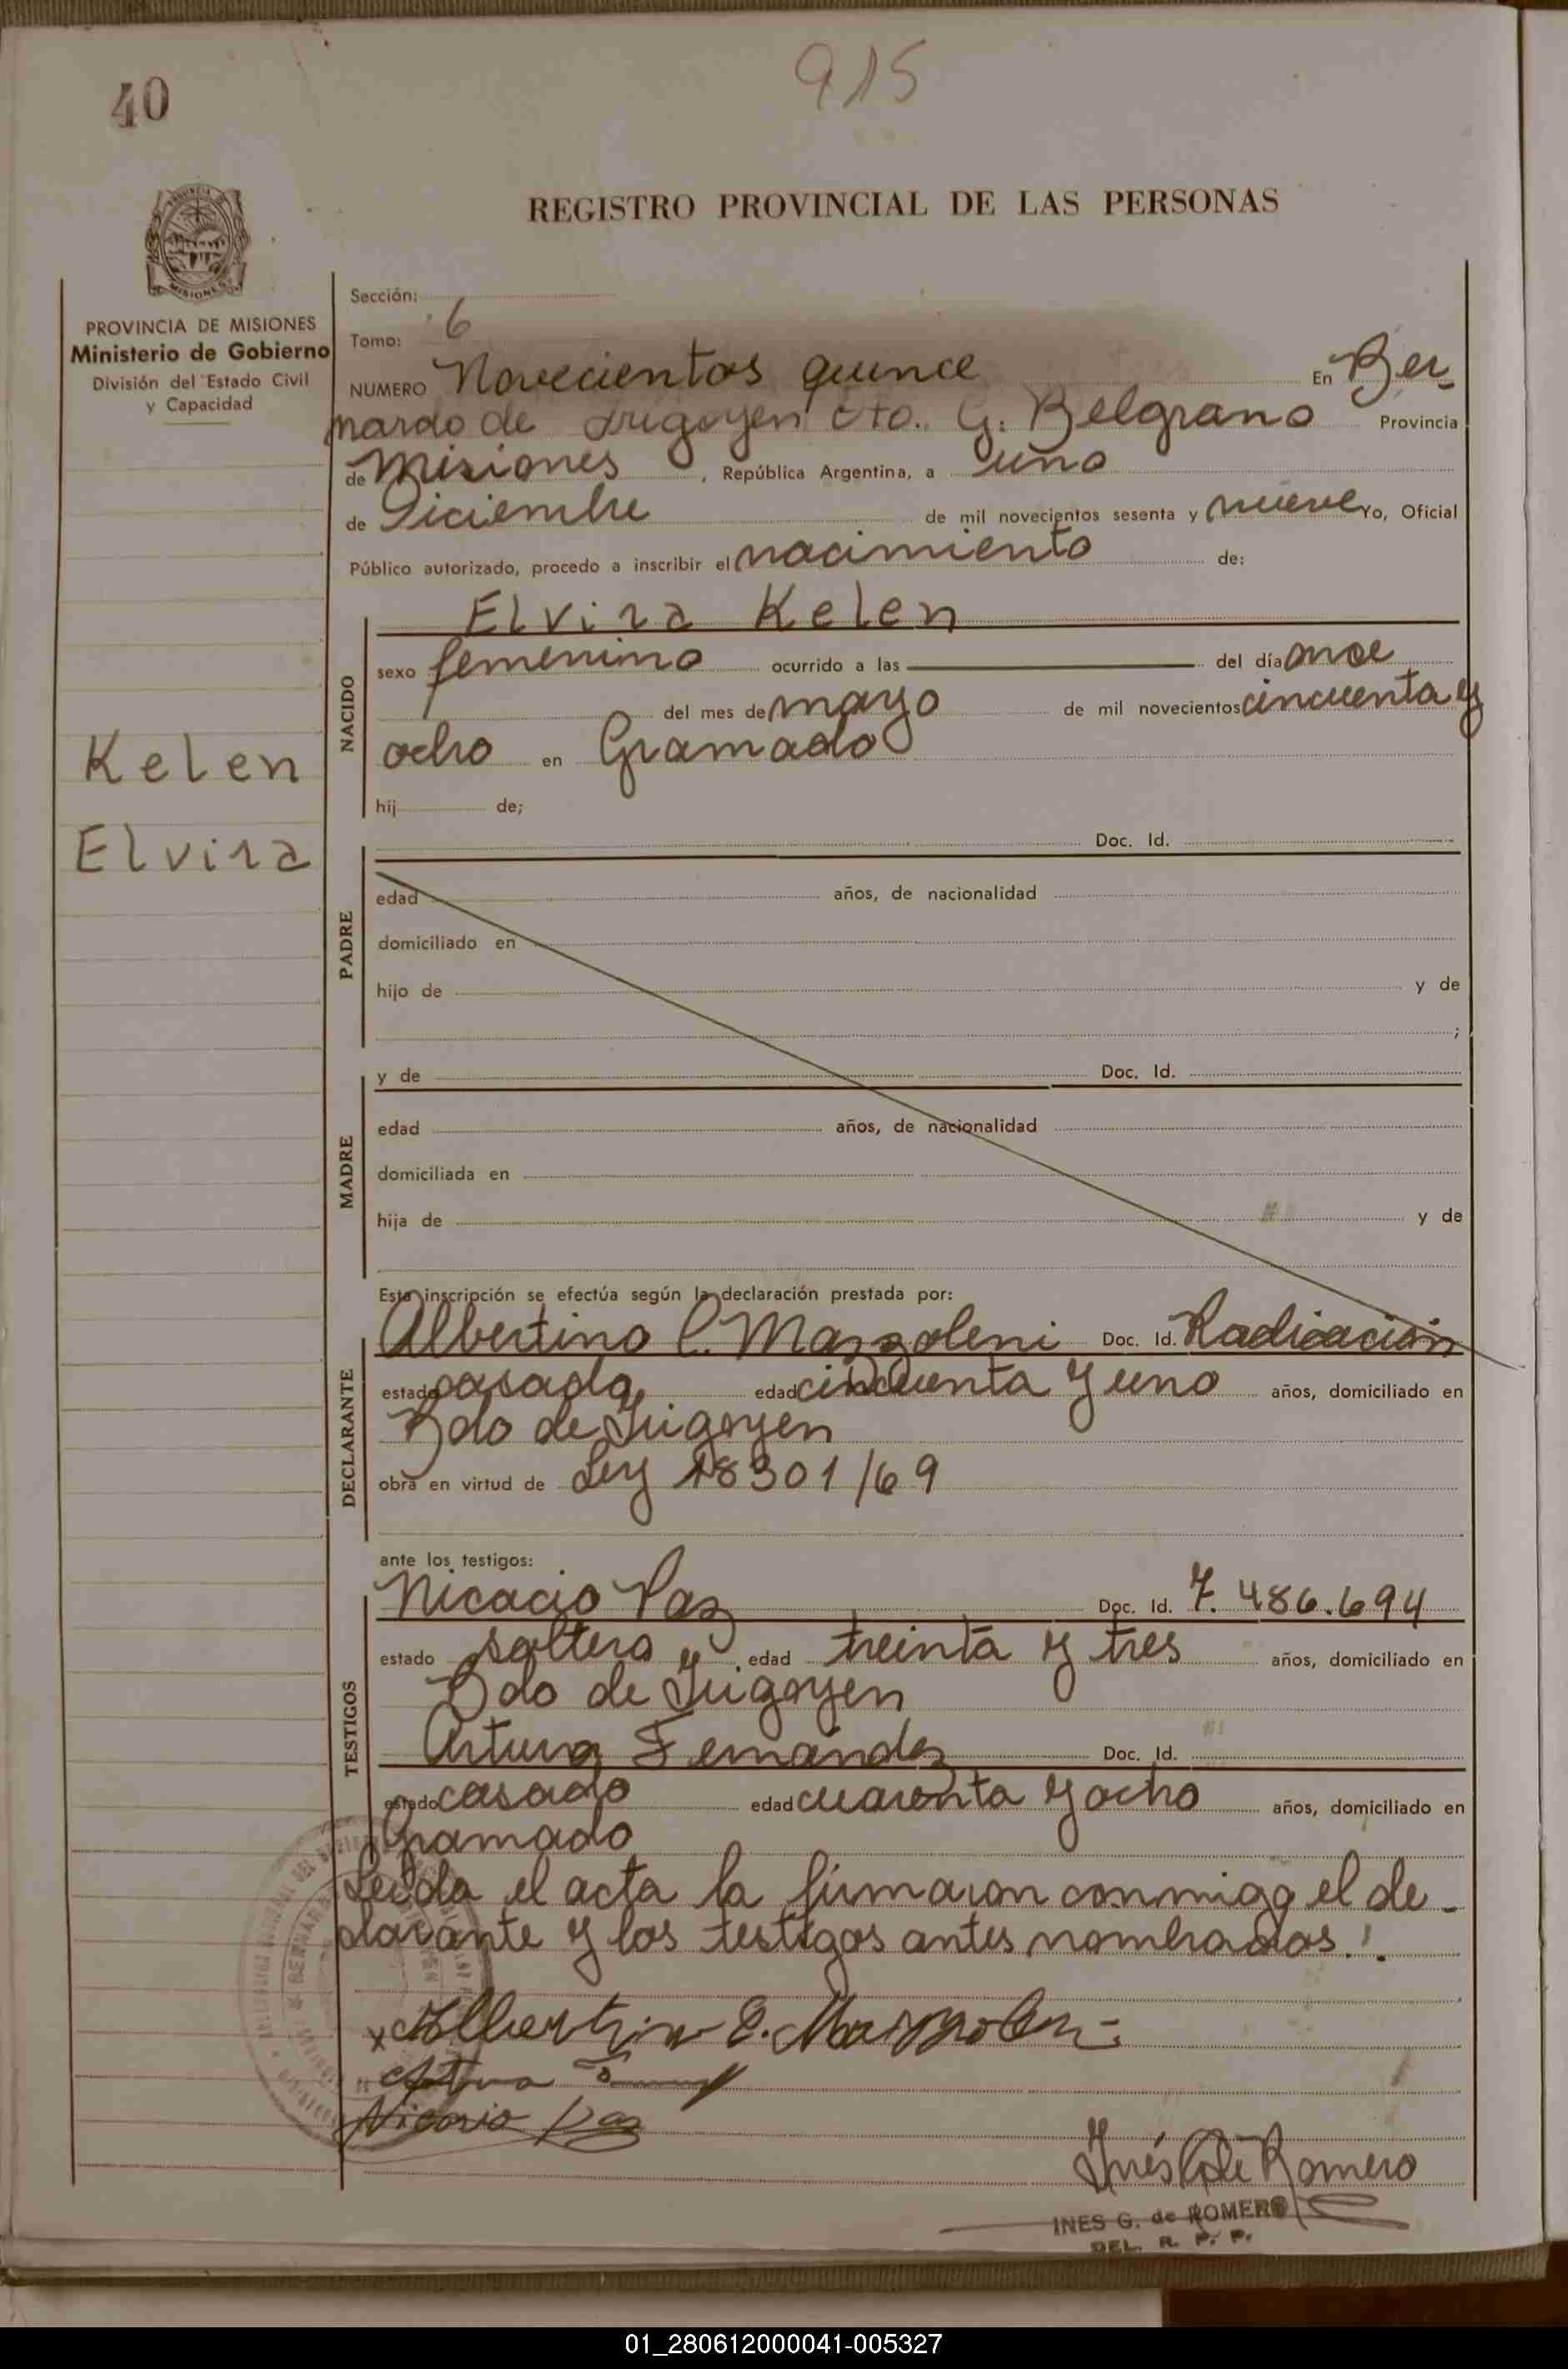 915
40
REGISTRO PROVINCIAL DE LAS PERSONAS
PROVINCIA DE MISIONES
Ministerio de Gobierno
División del Estado Civil
y Capacidad
Kelen
Elvira
Sección:
Tomo: 6
NUMERO Novecientos quince En Ber-
nardo de Irigoyen Dto. G. Belgrano Provincia
de Misiones, República Argentina, a uno
de Diciembre de mil novecientos sesenta y nueve Yo, Oficial
Público autorizado, procedo a inscribir el nacimiento de:
NACIDO
Elvira Kelen
sexo femenino ocurrido a las del día once
del mes de mayo de mil novecientos cincuenta y
ocho en Gramado
hij de;
PADRE
Doc. Id.
edad años, de nacionalidad
domiciliado en
hijo de y de
;
MADRE
y de Doc. Id.
edad años, de nacionalidad
domiciliada en
hija de y de
DECLARANTE
Esta inscripción se efectúa según la declaración prestada por:
Albertino C. Mazzoleni Doc. Id. Radicación
estado casado edad cincuenta y uno años, domiciliado en
Bdo de Irigoyen
obra en virtud de Ley 18301/69
TESTIGOS
ante los testigos:
Nicacio Paz Doc. Id. 7.486.694
estado soltero edad treinta y tres años, domiciliado en
Bdo de Irigoyen
Arturo Fernández Doc. Id.
estado casado edad cuarenta y ocho años, domiciliado en
Gramado
Leida el acta la firmaron conmigo el de-
clarante y los testigos antes nombrados.
Albertino C. Mazzoleni
Arturo
Nicacio Paz
Inés G de Romero
INES G. de ROMERO
DEL. R. P. P.
01_280612000041-005327